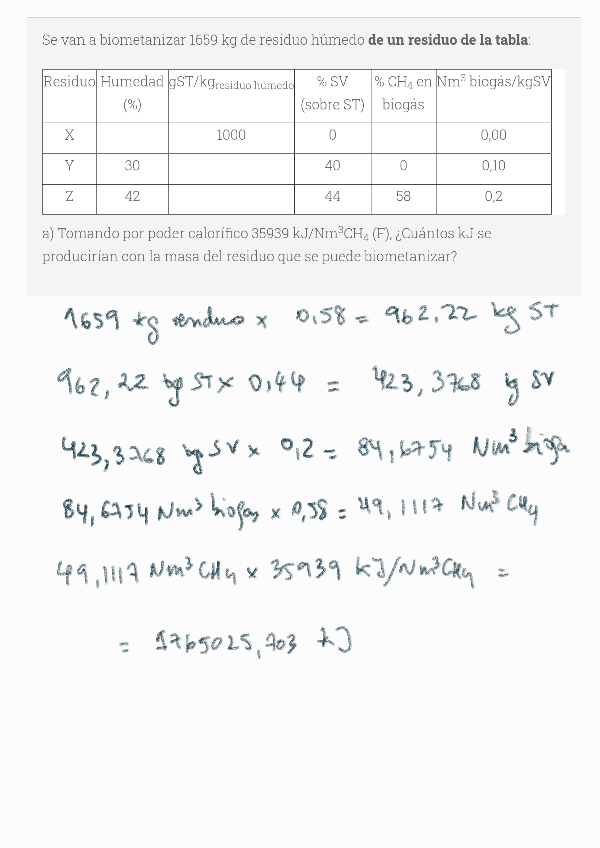 Se van a biometanizar 1659 kg de residuo húmedo de un residuo de la tabla:
Residuo Humedad (%) gST/kg residuo húmedo % SV (sobre ST) % CH4 en biogás Nm³ biogás/kgSV
X 1000 0 0,00
Y 30 40 0 0,10
Z 42 44 58 0,2
a) Tomando por poder calorífico 35939 kJ/Nm³CH4 (F), ¿Cuántos kJ se
producirían con la masa del residuo que se puede biometanizar?
1659 kg residuo x 0,58 = 962,22 kg ST
962,22 kg ST x 0,44 = 423,3768 kg SV
423,3768 kg SV x 0,2 = 84,6754 Nm³ bioga
84,6754 Nm³ biogas x 0,58 = 49,1117 Nm³ CH4
49,1117 Nm³ CH4 x 35939 kJ/Nm³CH4 =
= 1765025,703 kJ